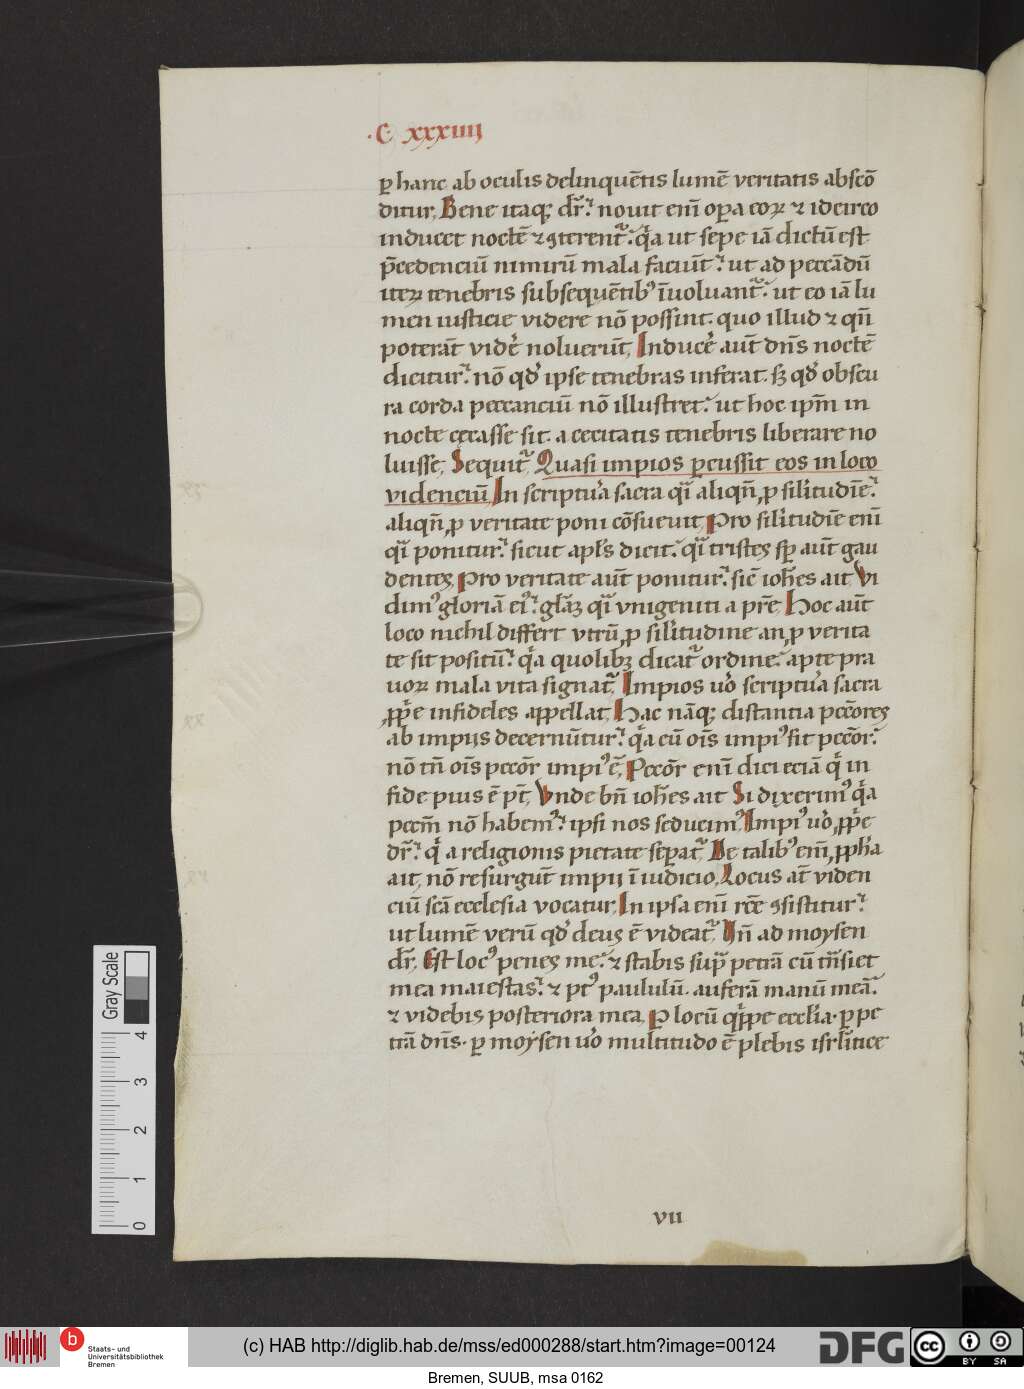 ·C· xxxiiii
ꝑ hanc ab oculis delinquētis lumē veritatis abscō
ditur. Bene itaqꝫ dr̄. nouit eni᷑ oꝑa eoꝝ ⁊ idcirco
inducet noctē ⁊ ꝯterent᷑. q̇a ut sepe iā dictū est
p̄cedenciū nimirū mala faciūt. ut ad peccādū
iteꝝ tenebris subsequētibꝰ īuoluant᷑. ut eo iā lu
men iusticie videre nō possint. quo illud ⁊ qn̄
poterāt vidē noluerūt. Inducē aūt dn̄s noctē
dicitur. nō qd̓ ipse tenebras inferat. sꝫ qd̓ obscu
ra corda peccanciū nō illustret. ut hoc ip̄m in
nocte cecasse sit. a cecitatis tenebris liberare no
luisse. Sequit᷑. Quasi impios ꝑcussit eos in loco
videnciū. In scriptura sacra qͥ aliqn̄ ꝓ sil̓itudīe.
aliqn̄ ꝓ veritate poni cōsueuit. Pro sil̓itudīe enī
qͥ ponitur. sicut apl̓s dicit. qͥ tristes sꝑ aūt gau
dentes. Pro veritate aūt ponitur. sic̄ ioh̄es ait Vi
dimꝰ gloriā eiꝰ. gl̓aꝫ qͥ vnigeniti a pr̄e. Hoc aūt
loco nichil differt vtrū ꝓ sil̓itudine an ꝓ verita
te sit positū. q̇a quolibꝫ dicat᷑ ordine. apte pra
uoꝝ mala vita signat᷑. Impios uō scriptura sacra
ꝓp̄e infideles appellat. Hac nāqꝫ distantia pccōres
ab impiis decernūtur. q̇a cū oīs impiꝰ sit pccōr.
nō tn̄ oīs pccōr impiꝰ ē. Pccōr enī dici eciā q̇ in
fide pius ē pt̄. Vnde bn̄ ioh̄es ait Si dixerimꝰ q̇a
pccm̄ nō habemꝰ. ipsi nos seducimꝰ. Impiꝰ uō ꝓp̄e
dr̄. q̇ a religionis pietate seꝑat᷑. De talibꝰ enī ꝓph̄a
ait. nō resurgūt impii ī iudicio. Locus at̄ viden
ciū scā ecclesia vocatur. In ipsa enī rc̄e ꝯsistitur.
ut lumē verū qd̓ deus ē videat᷑. Vn̄ ad moysen
dr̄. Est locꝰ penes me. ⁊ stabis sup̄ petrā cū tn̄siet
mea maiestas. ⁊ ptꝰ paululū. auferā manū meā.
⁊ videbis posteriora mea. Ꝑ locū qͥppe eccl̓ia. ꝑ pe
trā dn̄s. ꝑ moysen uō multitudo ē plebis isrl̓itice
vii
Gray Scale
4
3
2
1
0
b
Staats- und
Universitätsbibliothek
Bremen
(c) HAB http://diglib.hab.de/mss/ed000288/start.htm?image=00124
DFG
cc
BY SA
Bremen, SUUB, msa 0162